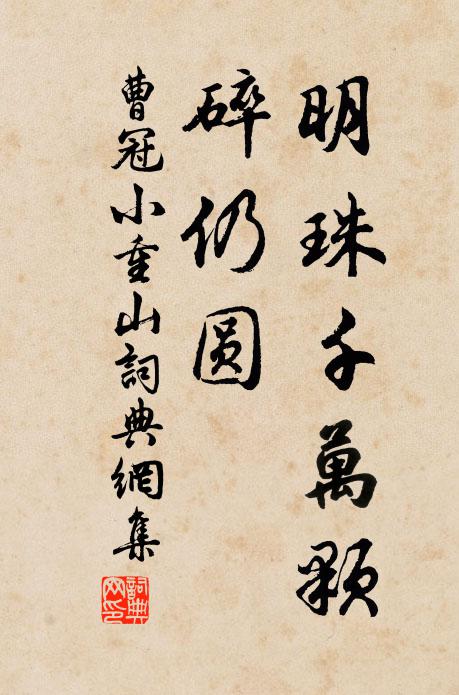 明珠千萬顆
碎仍圆
曹冠小重山詞典網集
詞典网印